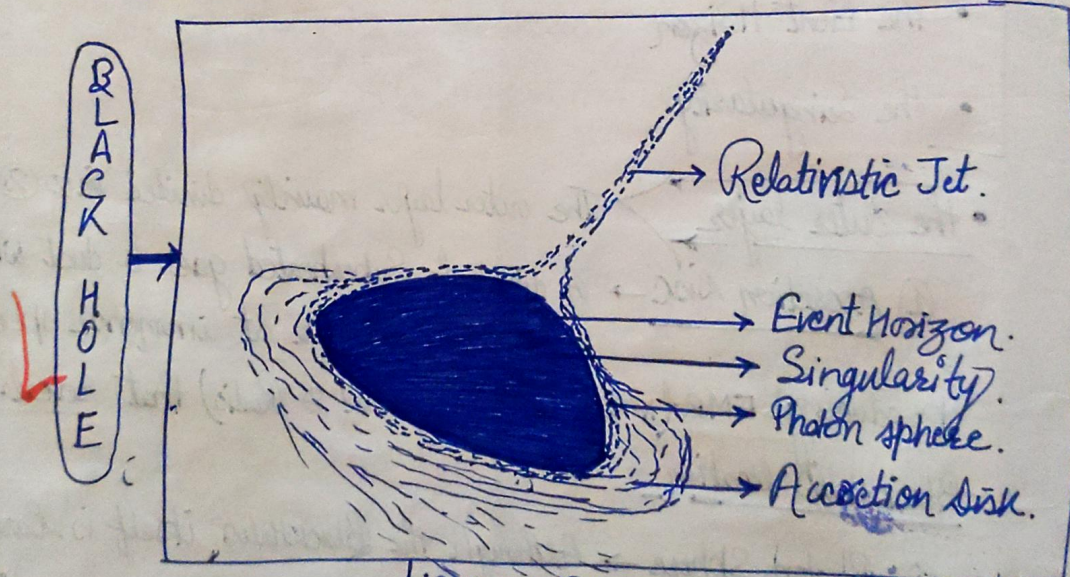 BLACK HOLE
Relativistic Jet.
Event Horizon.
Singularity.
Photon sphere.
Accretion Disk.